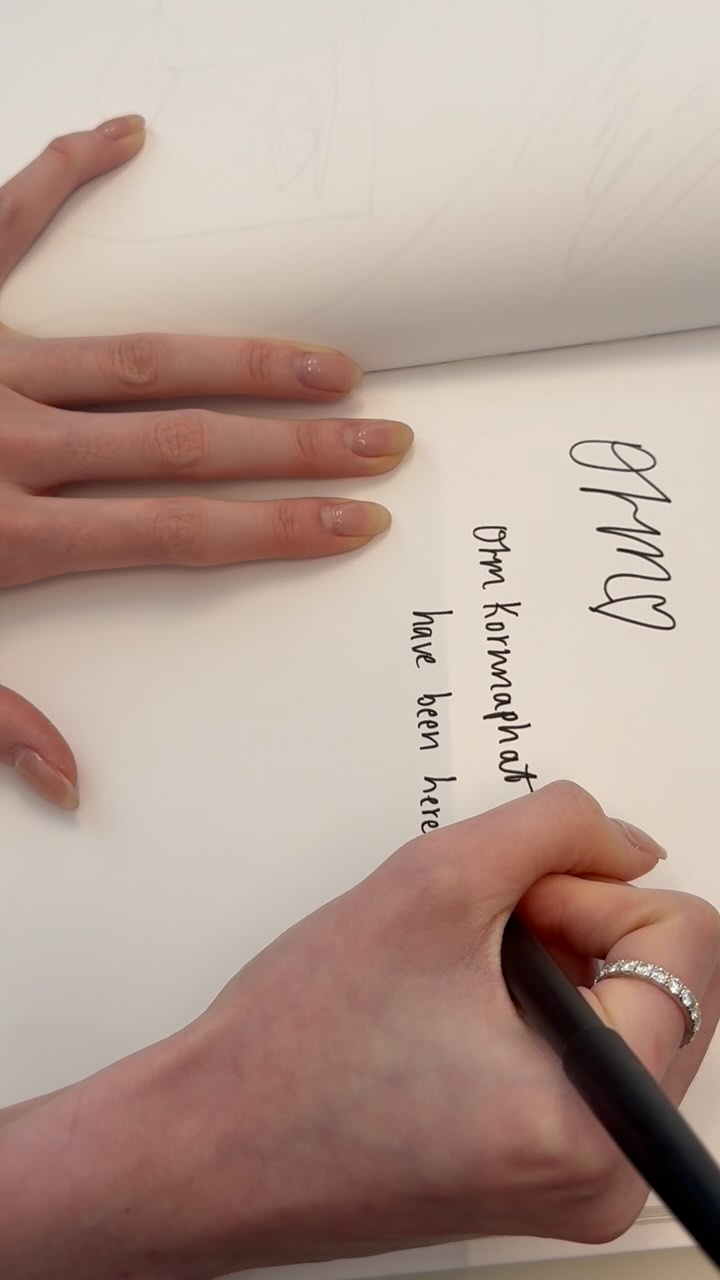 Ohm♡
Ohm Kornnaphat
have been here